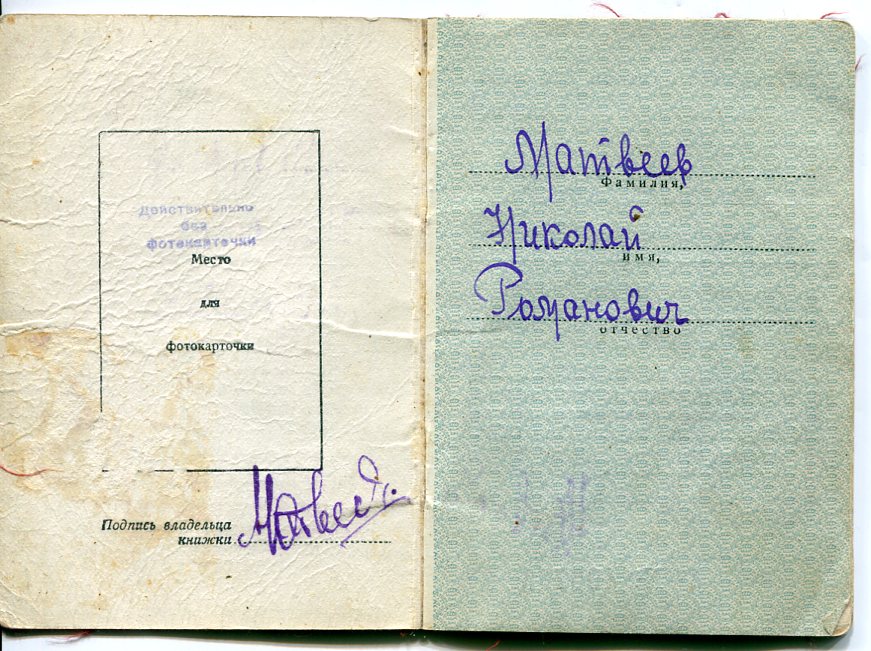 Действительно
без
фотокарточки
Место
для
фотокарточки
Подпись владельца
книжки
Матвеев
Фамилия,
Николай
имя,
Романович
отчество